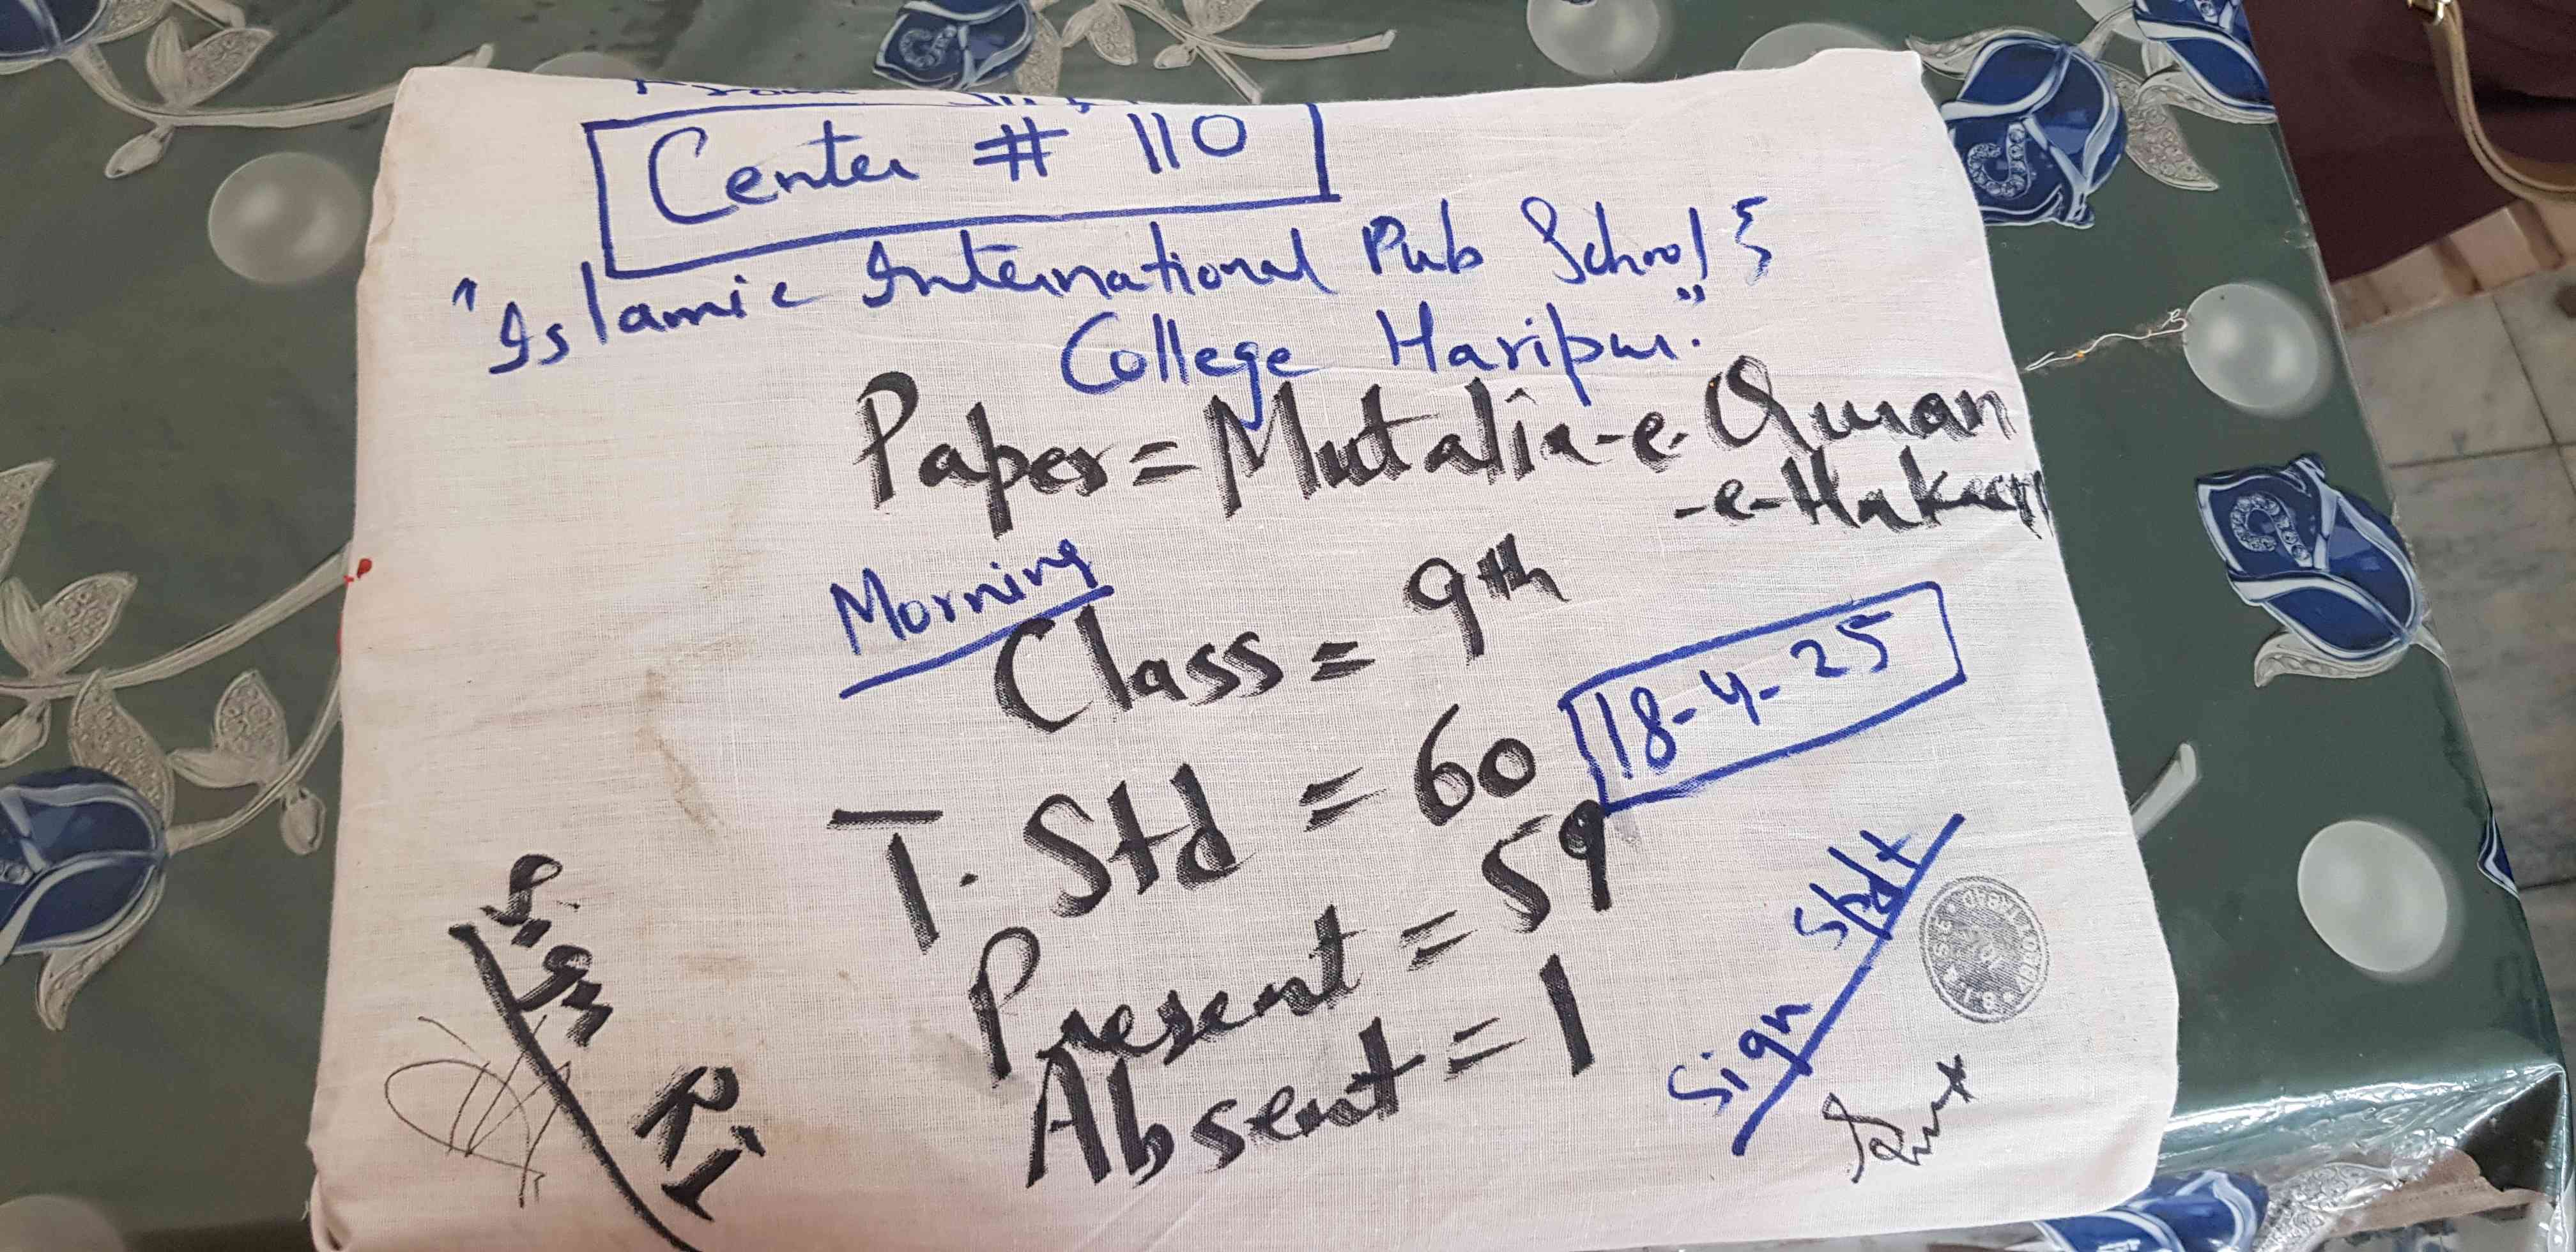 Center # 110
"Islamic International Pub School &
College Haripur."
Paper = Mutalia-e-Quran
-e-Hakeem
Morning
Class = 9th
18-4-25
T. Std = 60
Present = 59
Absent = 1
Sign RI
Sign Spdt